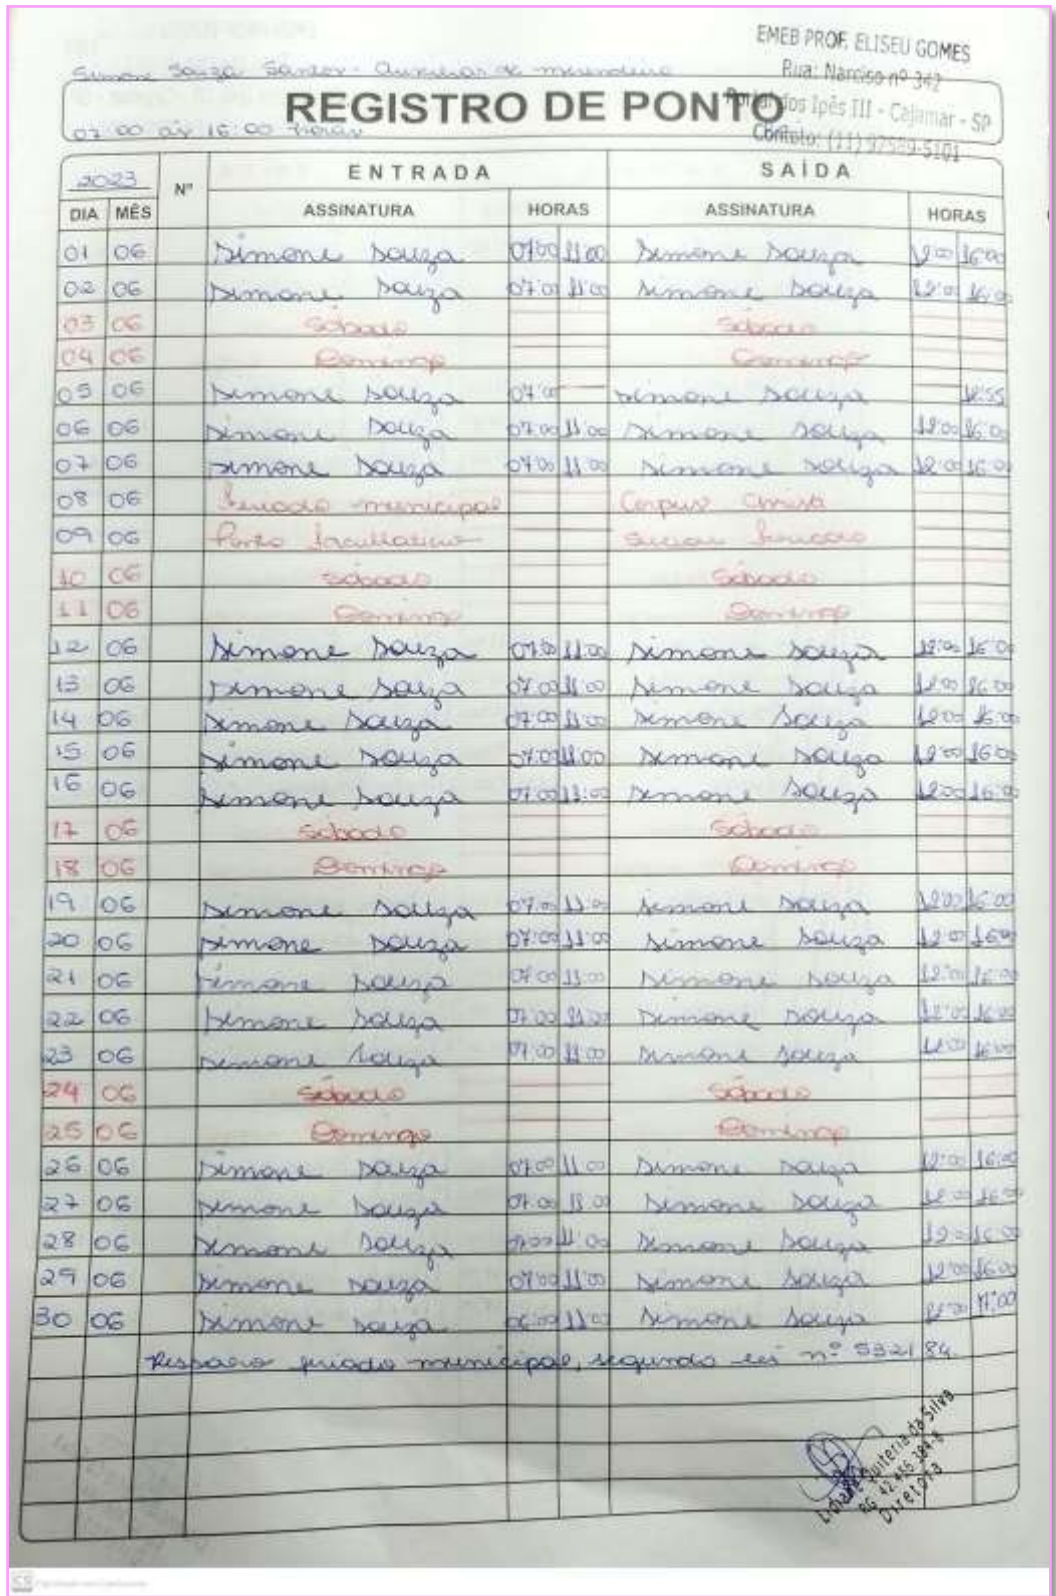 EMEB PROF. ELISEU GOMES
Rua: Narciso nº 342
Simone Souza Santos - Auxiliar de merendeira
REGISTRO DE PONTO
Portal dos Ipês III - Cajamar - SP
07:00 às 16:00 horas
Contato: (11) 97589-5101
2023 Nº ENTRADA SAÍDA
DIA MÊS ASSINATURA HORAS ASSINATURA HORAS
01 06 Simone Souza 07:00 11:00 Simone Souza 12:00 16:00
02 06 Simone Souza 07:00 11:00 Simone Souza 12:00 16:00
03 06 Sábado Sábado
04 06 Domingo Domingo
05 06 Simone Souza 07:00 Simone Souza 12:55
06 06 Simone Souza 07:00 11:00 Simone Souza 12:00 16:00
07 06 Simone Souza 07:00 11:00 Simone Souza 12:00 16:00
08 06 Feriado municipal Corpus Christi
09 06 Ponto facultativo
10 06 Sábado Sábado
11 06 Domingo Domingo
12 06 Simone Souza 07:00 11:00 Simone Souza 12:00 16:00
13 06 Simone Souza 07:00 11:00 Simone Souza 12:00 16:00
14 06 Simone Souza 07:00 11:00 Simone Souza 12:00 16:00
15 06 Simone Souza 07:00 11:00 Simone Souza 12:00 16:00
16 06 Simone Souza 07:00 11:00 Simone Souza 12:00 16:00
17 06 Sábado Sábado
18 06 Domingo Domingo
19 06 Simone Souza 07:00 11:00 Simone Souza 12:00 16:00
20 06 Simone Souza 07:00 11:00 Simone Souza 12:00 16:00
21 06 Simone Souza 07:00 11:00 Simone Souza 12:00 16:00
22 06 Simone Souza 07:00 11:00 Simone Souza 12:00 16:00
23 06 Simone Souza 07:00 11:00 Simone Souza 12:00 16:00
24 06 Sábado Sábado
25 06 Domingo Domingo
26 06 Simone Souza 07:00 11:00 Simone Souza 12:00 16:00
27 06 Simone Souza 07:00 11:00 Simone Souza 12:00 16:00
28 06 Simone Souza 07:00 11:00 Simone Souza 12:00 16:00
29 06 Simone Souza 07:00 11:00 Simone Souza 12:00 16:00
30 06 Simone Souza 06:00 11:00 Simone Souza 12:00 17:00
municipal, segundo lei nº 532/84.
Quiteria da Silva
Diretora
CS